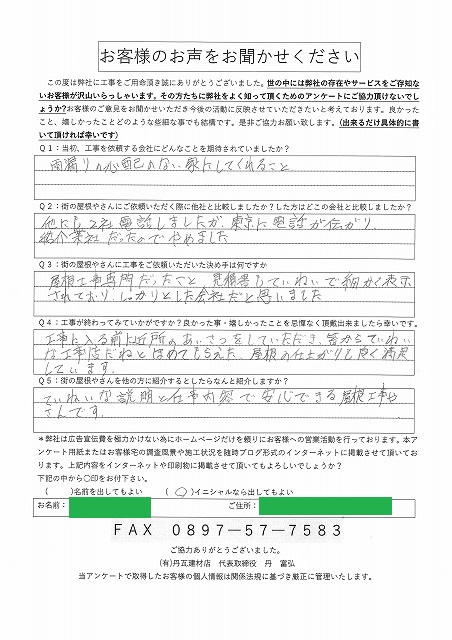 お客様のお声をお聞かせください
この度は弊社に工事をご用命頂き誠にありがとうございました。世の中には弊社の存在やサービスをご存知な
いお客様が沢山いらっしゃいます。その方たちに弊社をよく知って頂くためのアンケートにご協力頂けないでし
ょうか?お客様のご意見をお聞かせいただき今後の活動に反映させていただきたいと考えております。良かった
こと、嬉しかったことどのような些細な事でも結構です。是非ご協力お願い致します。(出来るだけ具体的に書
いて頂ければ幸いです)
Q1:当初、工事を依頼する会社にどんなことを期待されていましたか?
雨漏りの心配のない家にしてくれること
Q2:街の屋根やさんにご依頼いただく際に他社と比較しましたか?した方はどこの会社と比較しましたか?
他にも2社電話しましたが、東京に電話が伝がり、
紹介業社だったのでやめました
Q3:街の屋根やさんに工事をご依頼いただいた決め手は何ですか
屋根工事専門だったこと 見積書もていねいで細かく表示
されており、しっかりとした会社だと思いました
Q4:工事が終わってみていかがですか?良かった事・嬉しかったことを忌憚なく頂戴出来ましたら幸いです。
工事に入る前に近所のあいさつをしていただき、皆からていねい
な工事店だねとほめてもらえた、屋根の仕上がりも良く満足
しています。
Q5:街の屋根やさんを他の方に紹介するとしたらなんと紹介しますか?
ていねいな説明と仕事内容で安心できる屋根工事店
さんです。
*弊社は広告宣伝費を極力かけない為にホームページだけを頼りにお客様への営業活動を行っております。本ア
ンケート用紙またはお客様宅の調査風景や施工状況を随時ブログ形式のインターネットに掲載させて頂いてお
ります。上記内容をインターネットや印刷物に掲載させて頂いてもよろしいでしょうか?
下記の中から〇印をお付下さい。
( )名前を出してもよい ( 〇 )イニシャルなら出してもよい
お名前: ご住所:
FAX 0897-57-7583
ご協力ありがとうございました。
(有)丹瓦建材店 代表取締役 丹 富弘
当アンケートで取得したお客様の個人情報は関係法規に基づき厳正に管理いたします。